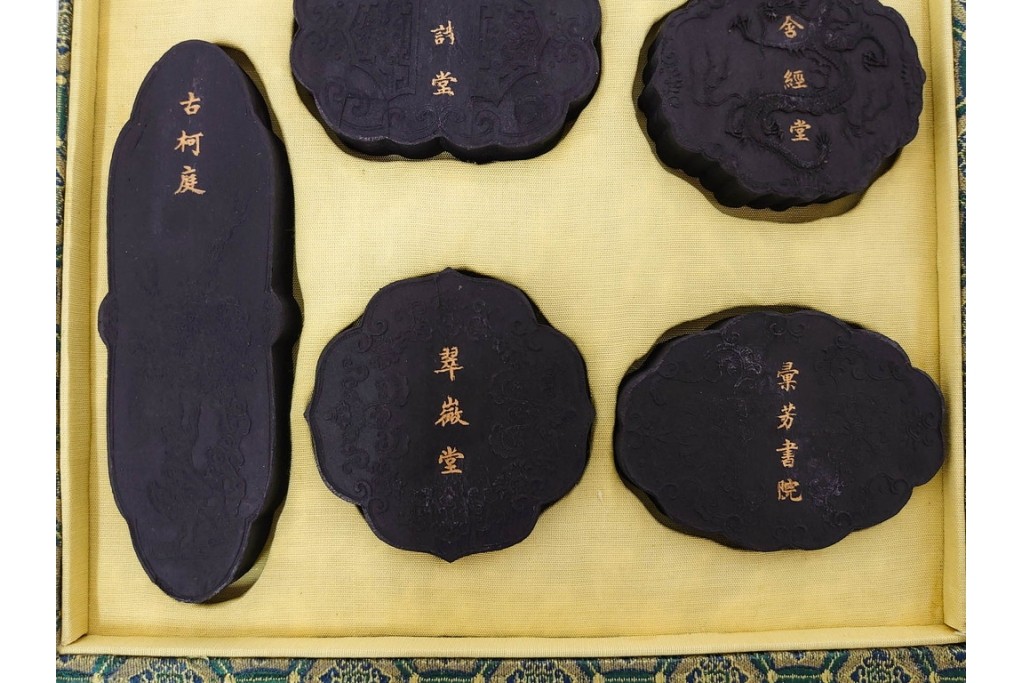 古柯庭
詩堂
含經堂
翠嶶堂
彙芳書院